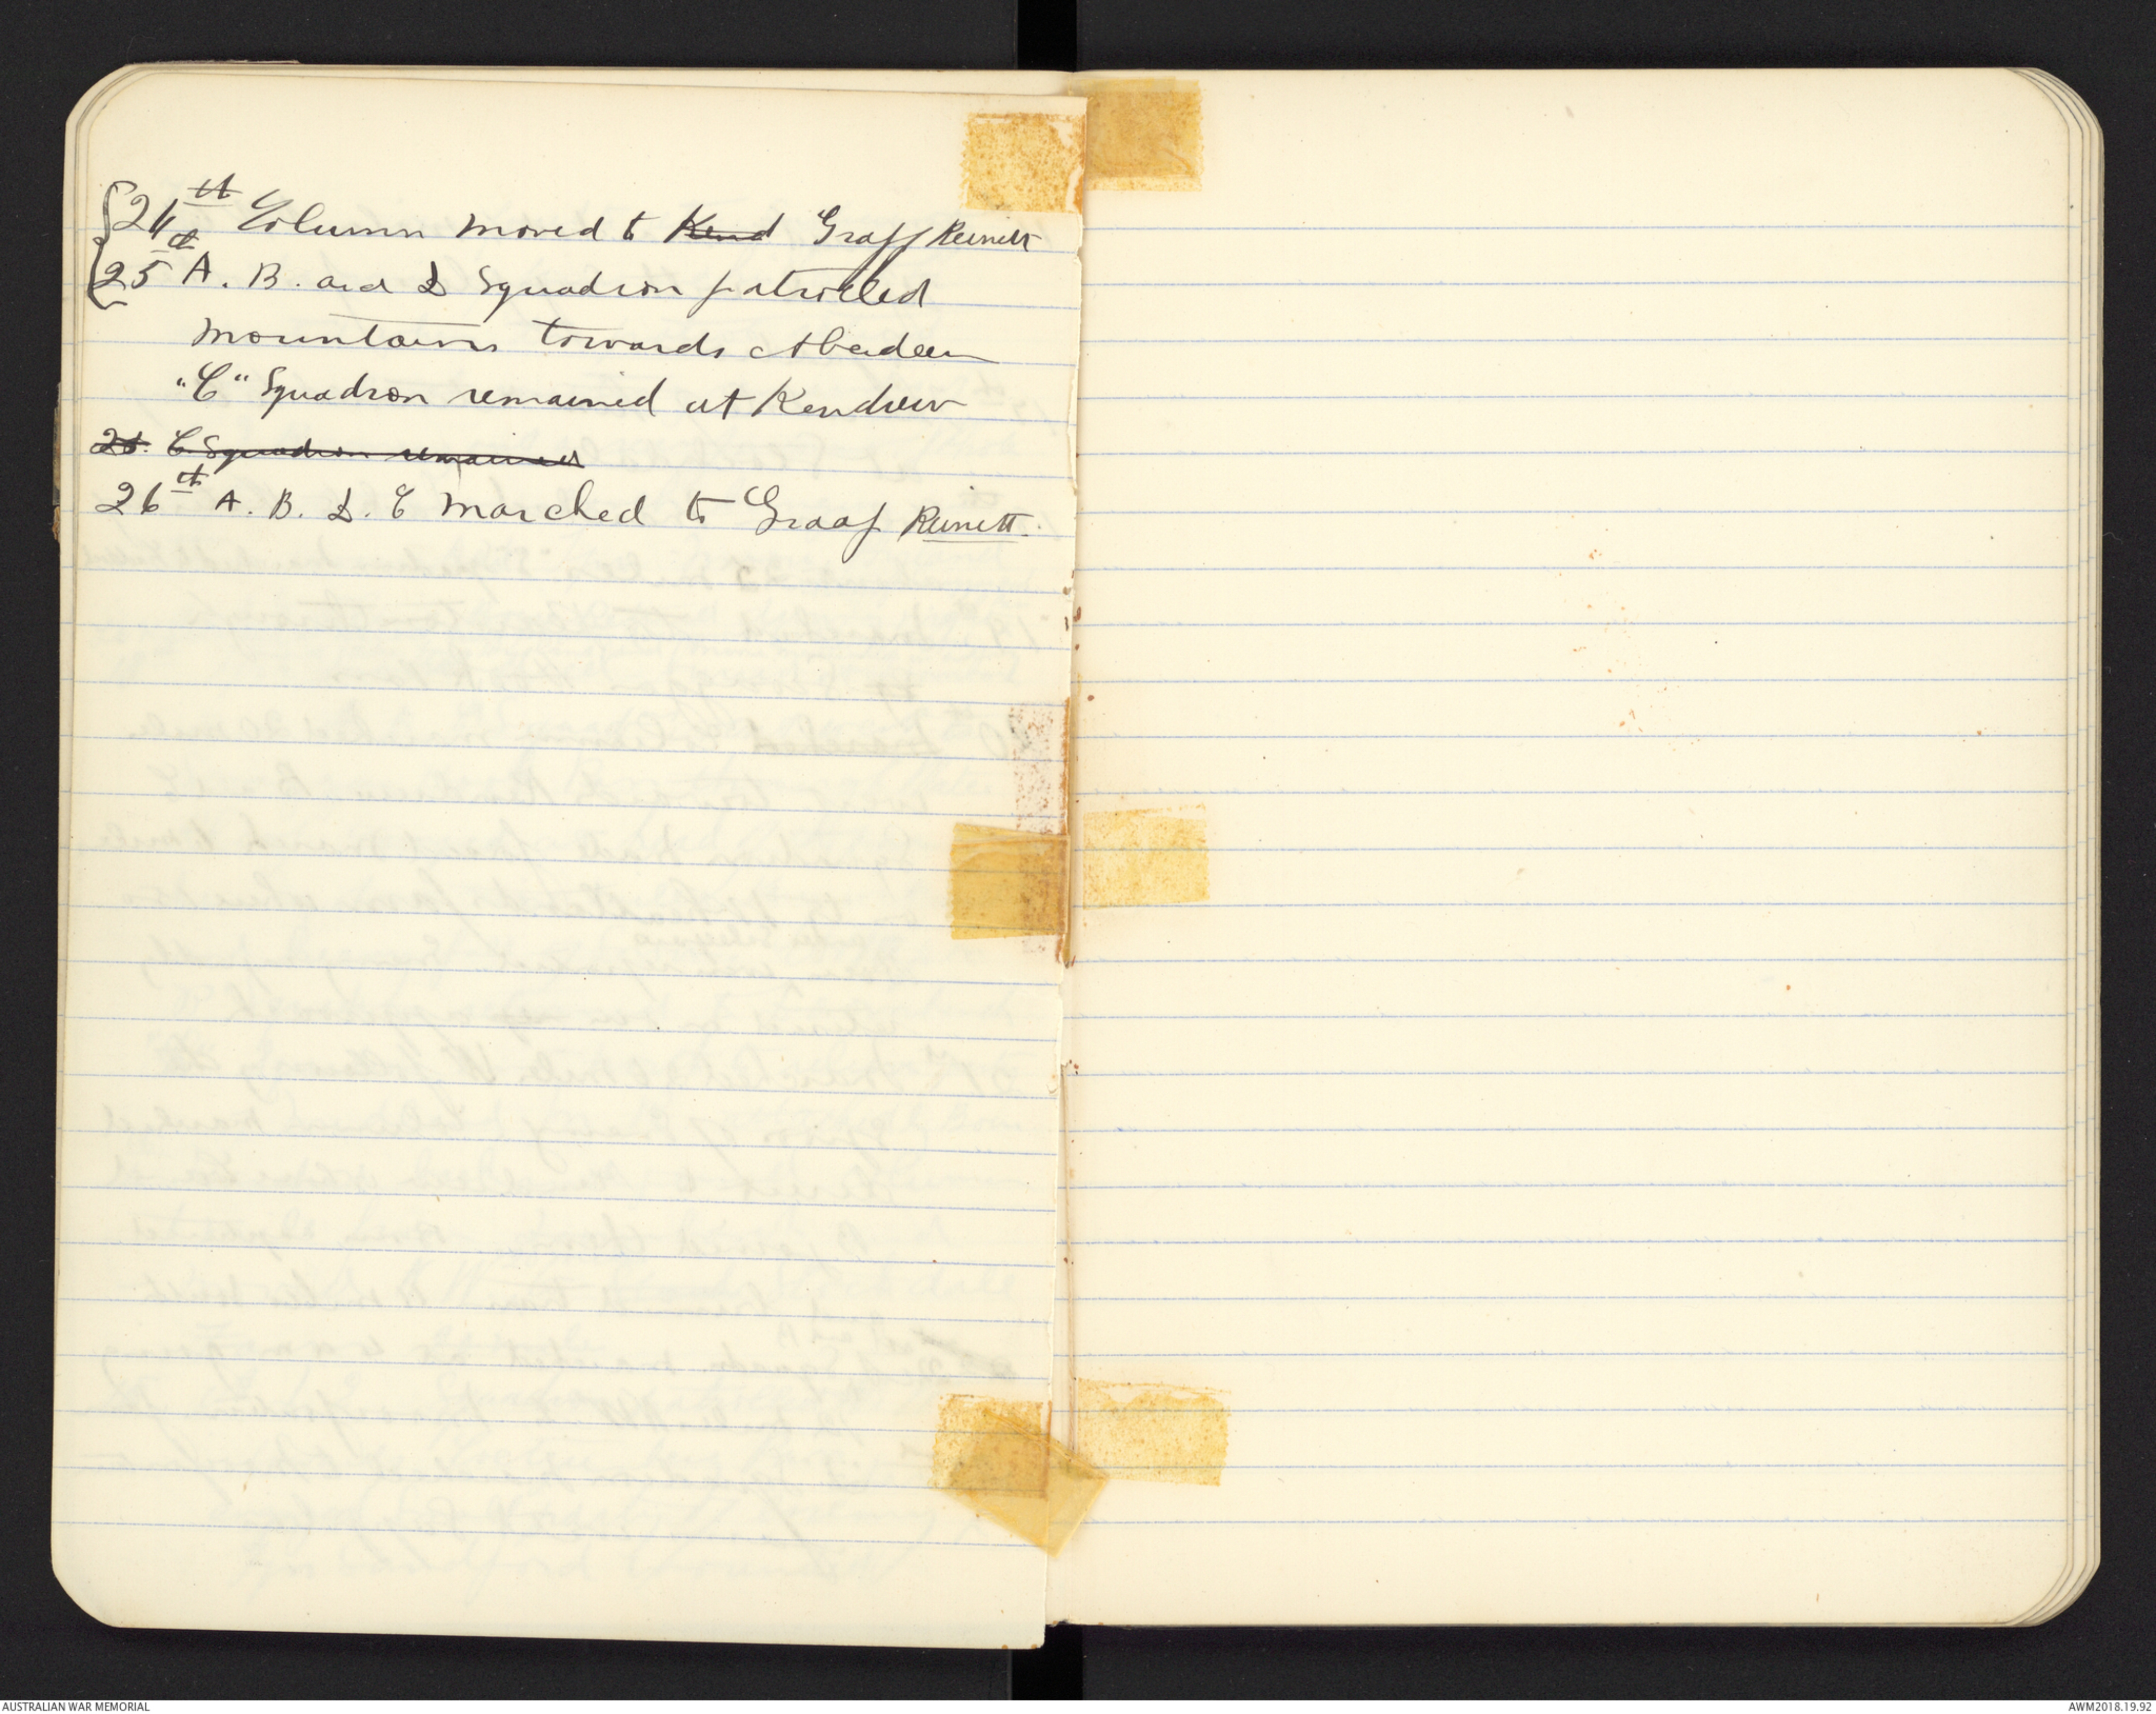 {24th Column moved to Kend Graff Reinett
{25th A. B. and D Squadron patrolled
mountains towards Aberdeen
"C" Squadron remained at Kendrew
25. C. Squadron remained
26th A. B. D. C marched to Graaf Reinett.
AUSTRALIAN WAR MEMORIAL
AWM2018.19.92